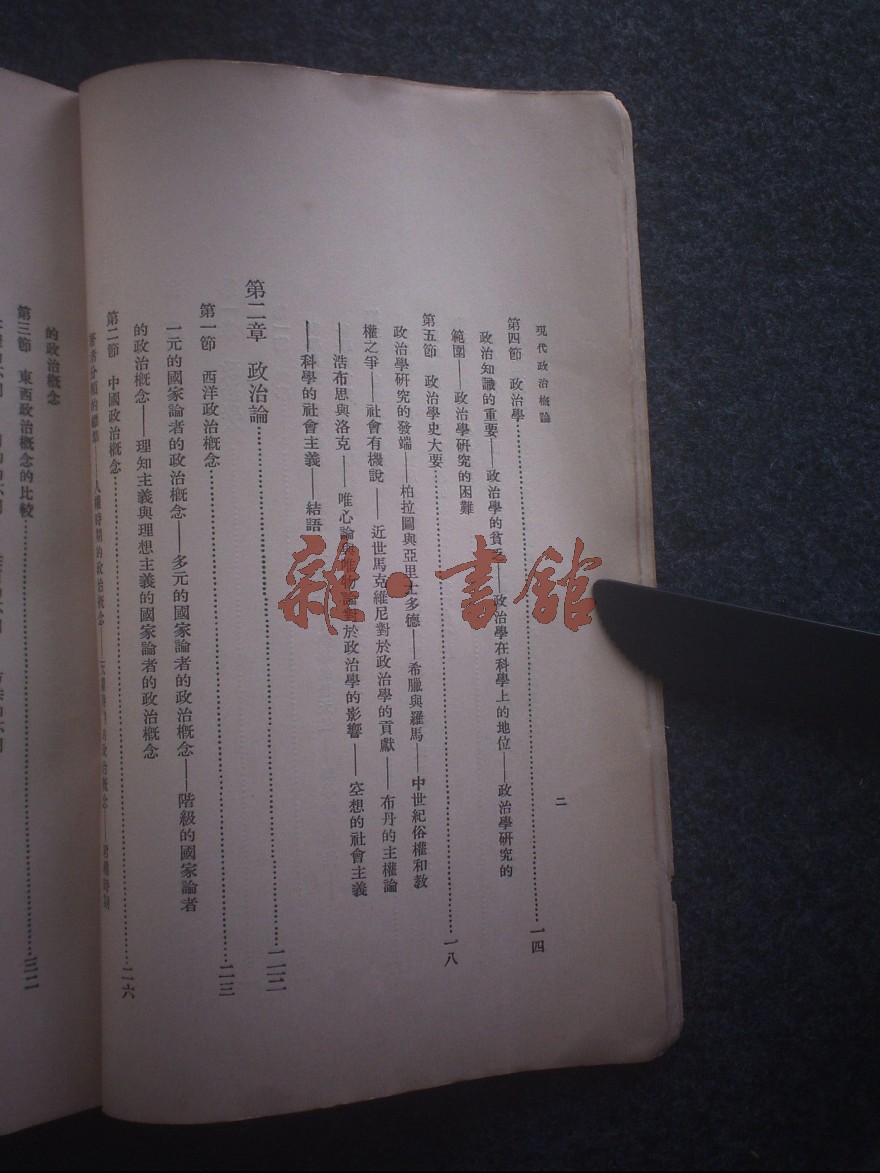 現代政治概論
二
第四節 政治學……一四
政治知識的重要——政治學的貧乏——政治學在科學上的地位——政治學研究的
範圍——政治學研究的困難
第五節 政治學史大要……一八
政治學研究的發端——柏拉圖與亞里士多德——希臘與羅馬——中世紀俗權和教
權之爭——社會有機說——近世馬克維尼對於政治學的貢獻——布丹的主權論
——浩布思與洛克——唯心論與唯物論對於政治學的影響——空想的社會主義
——科學的社會主義——結語
第二章 政治論……二二
第一節 西洋政治概念……二三
一元的國家論者的政治概念——多元的國家論者的政治概念——階級的國家論者
的政治概念——理知主義與理想主義的國家論者的政治概念
第二節 中國政治概念……二六
的政治概念
第三節 東西政治概念的比較……三二
雜·書館